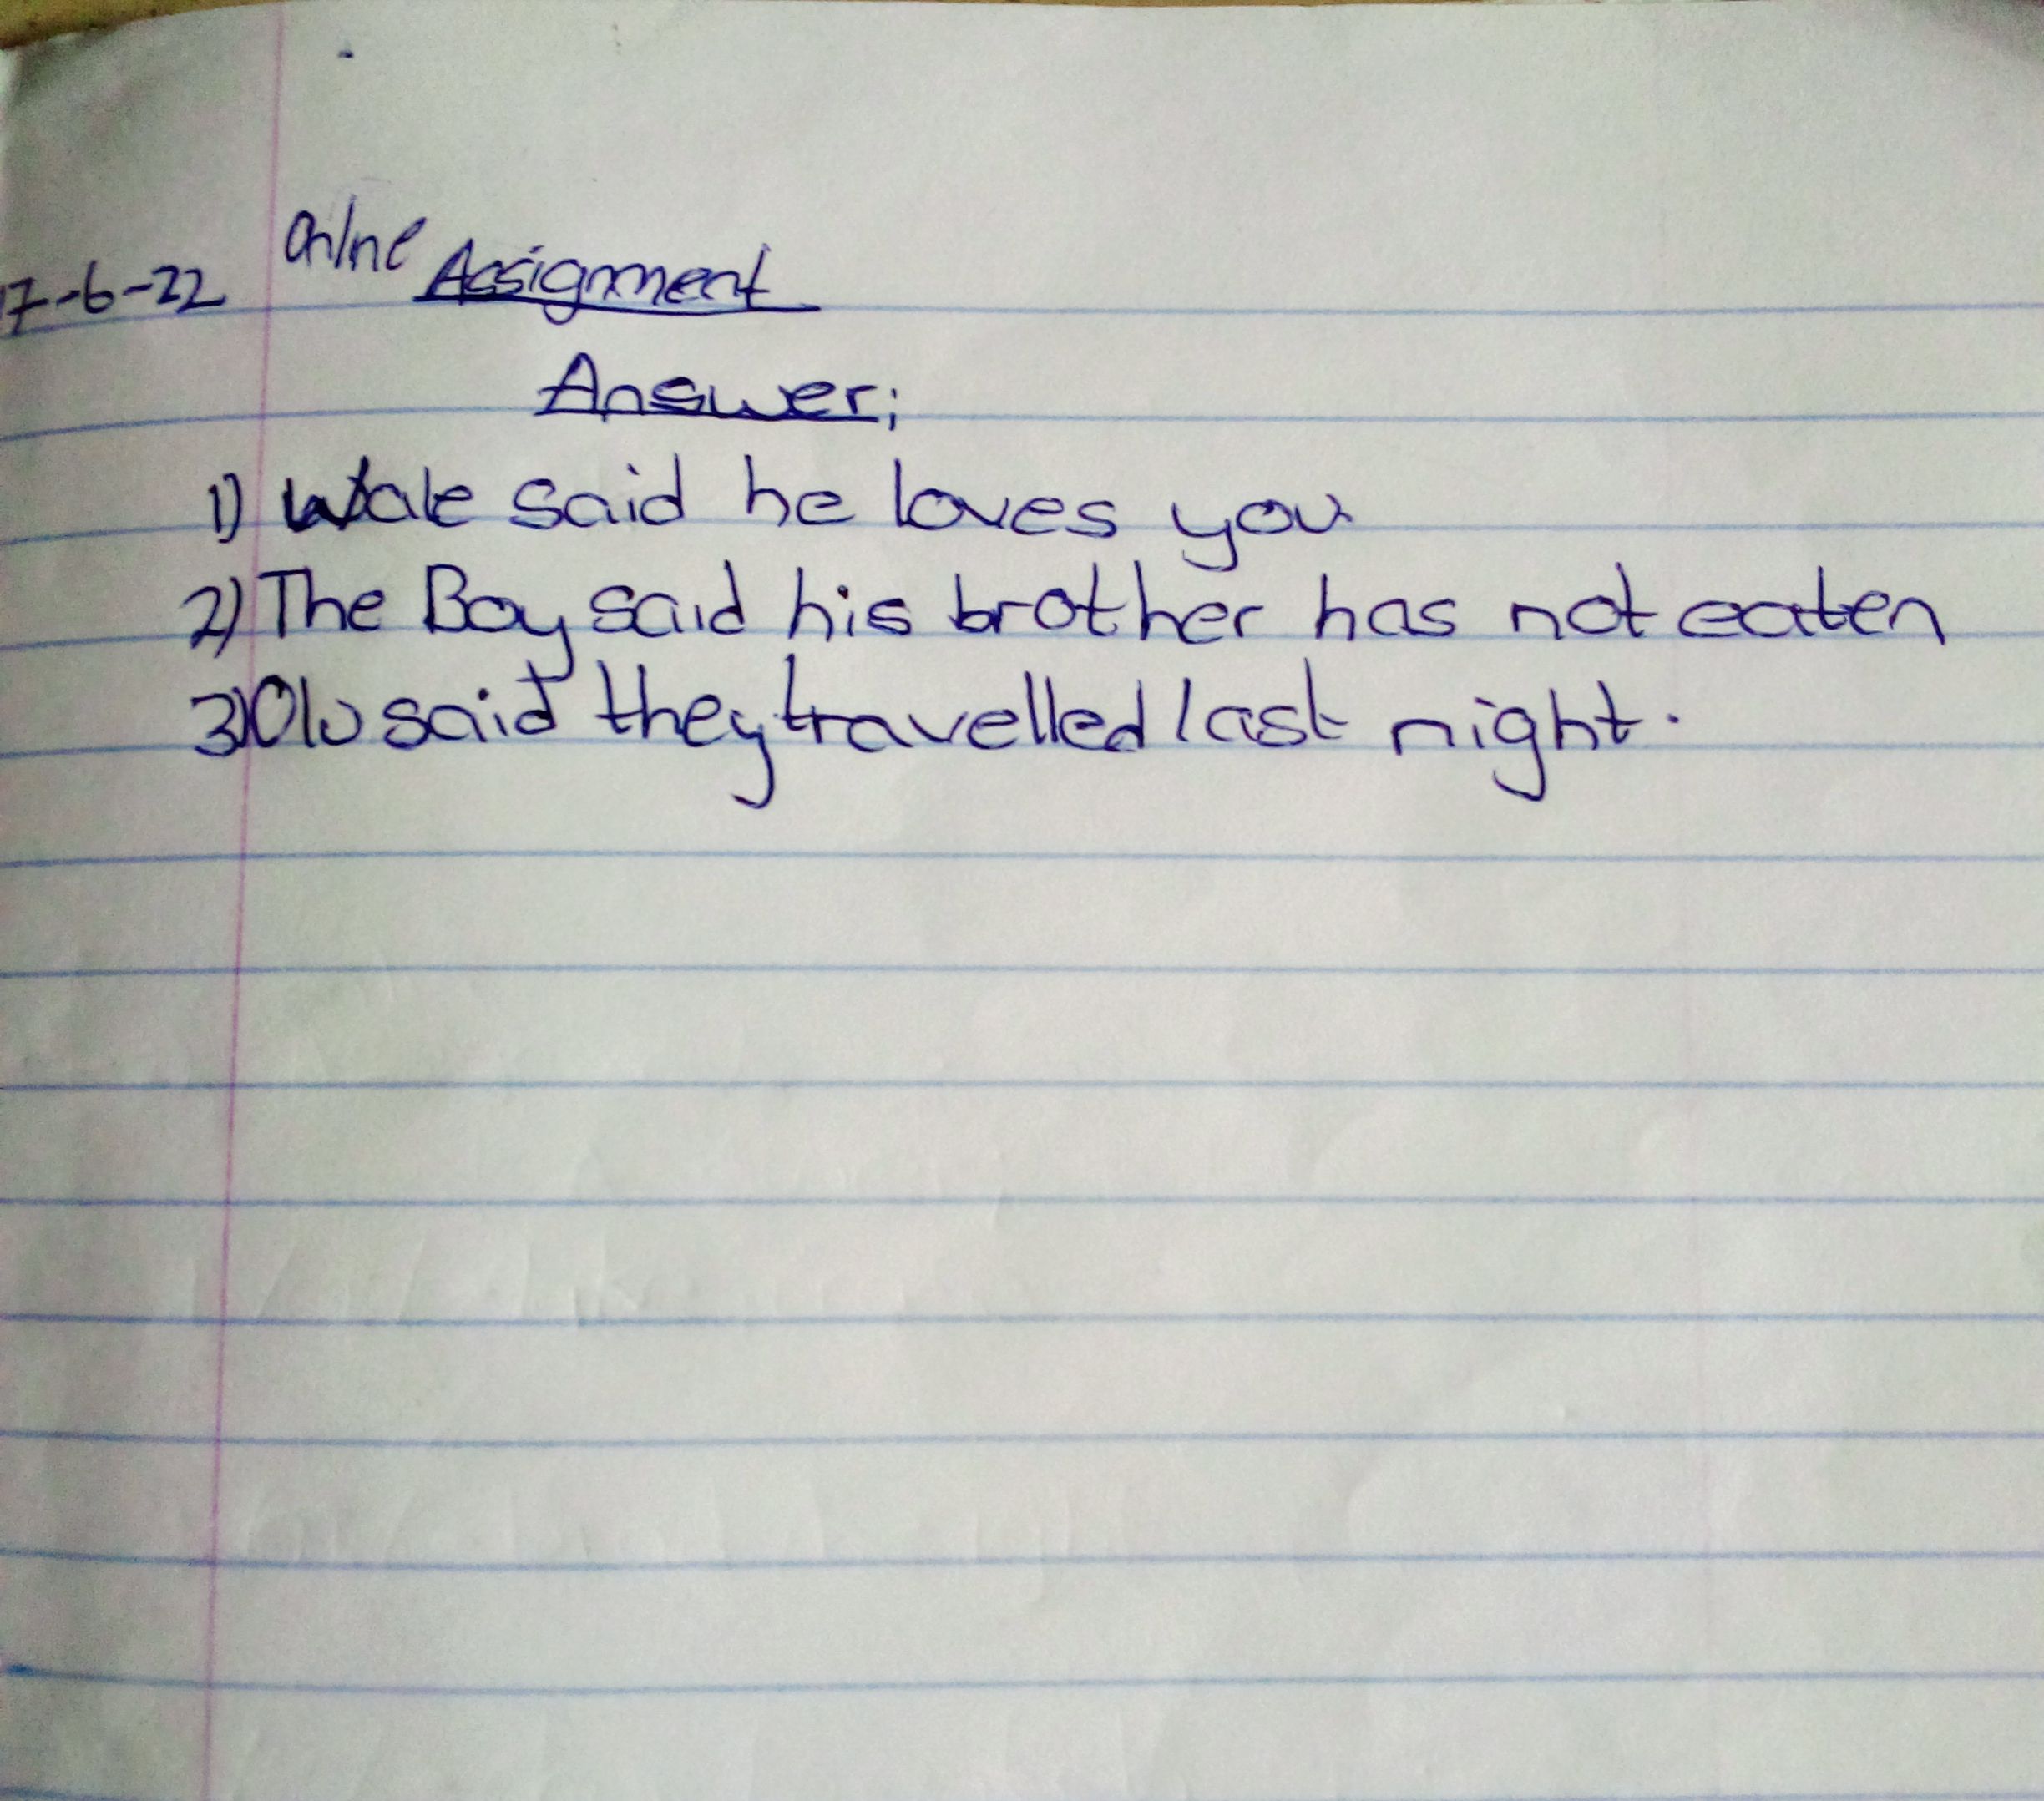 17-6-22 Online Assignment
Answer;
1) Wale said he loves you
2) The Boy said his brother has not eaten
3) Olu said they travelled last night.